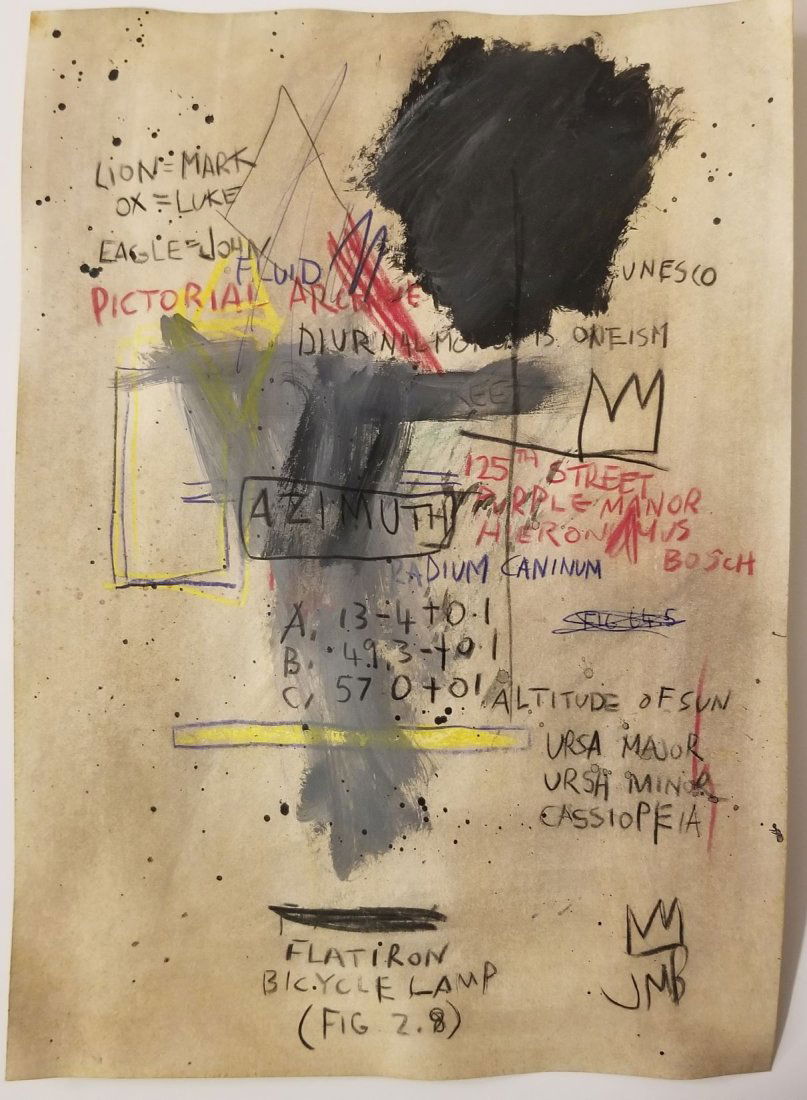 LION=MARK
OX=LUKE
EAGLE=JOHN
FLUID
UNESCO
PICTORIAL ARCHIVE
DIURNAL IS ONEISM
125TH STREET
PURPLE MANOR
HIERONYMUS
BOSCH
AZIMUTH
RADIUM CANINUM
A. 13-4+0.1
B. .49.3-+0.1
C, 57 0+01
ALTITUDE OF SUN
URSA MAJOR
URSA MINOR
CASSIOPEIA
FLATIRON
BICYCLE LAMP
(FIG 2.8)
JMB